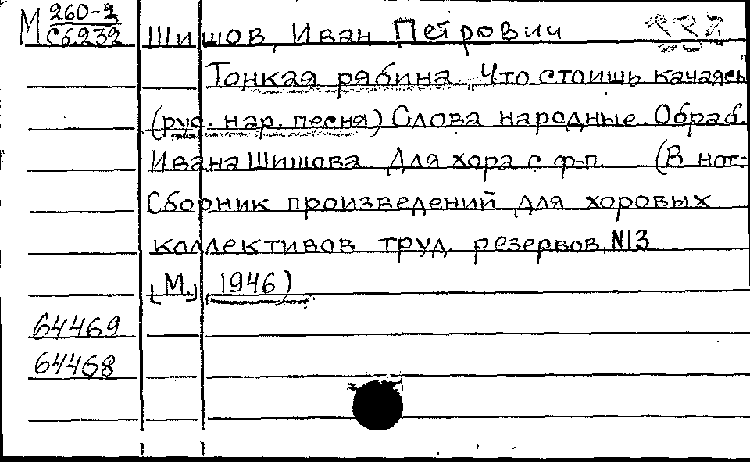 М 260-2
С6232 Шишов, Иван Петрович
Тонкая рябина. Что стоишь качаясь
(рус. нар. песня) Слова народные. Обраб.
Ивана Шишова. Для хора с ф-п. (В нот.:
Сборник произведений для хоровых
коллективов труд. резервов, №13
[М.], 1946)
64469
64468